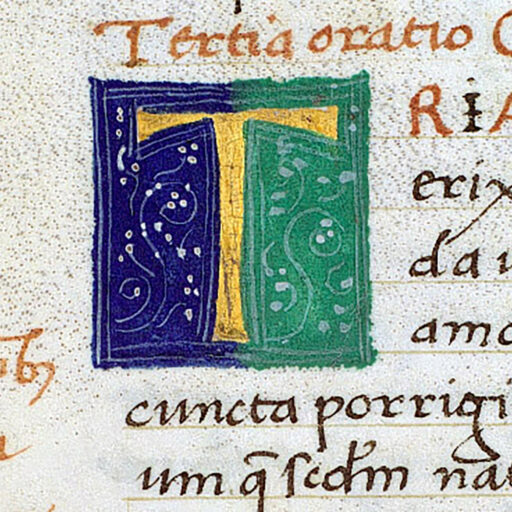 Tertia oratio
T RIA
erix
da
amo
cuncta porrigi
um q̃ scdm̃ nat